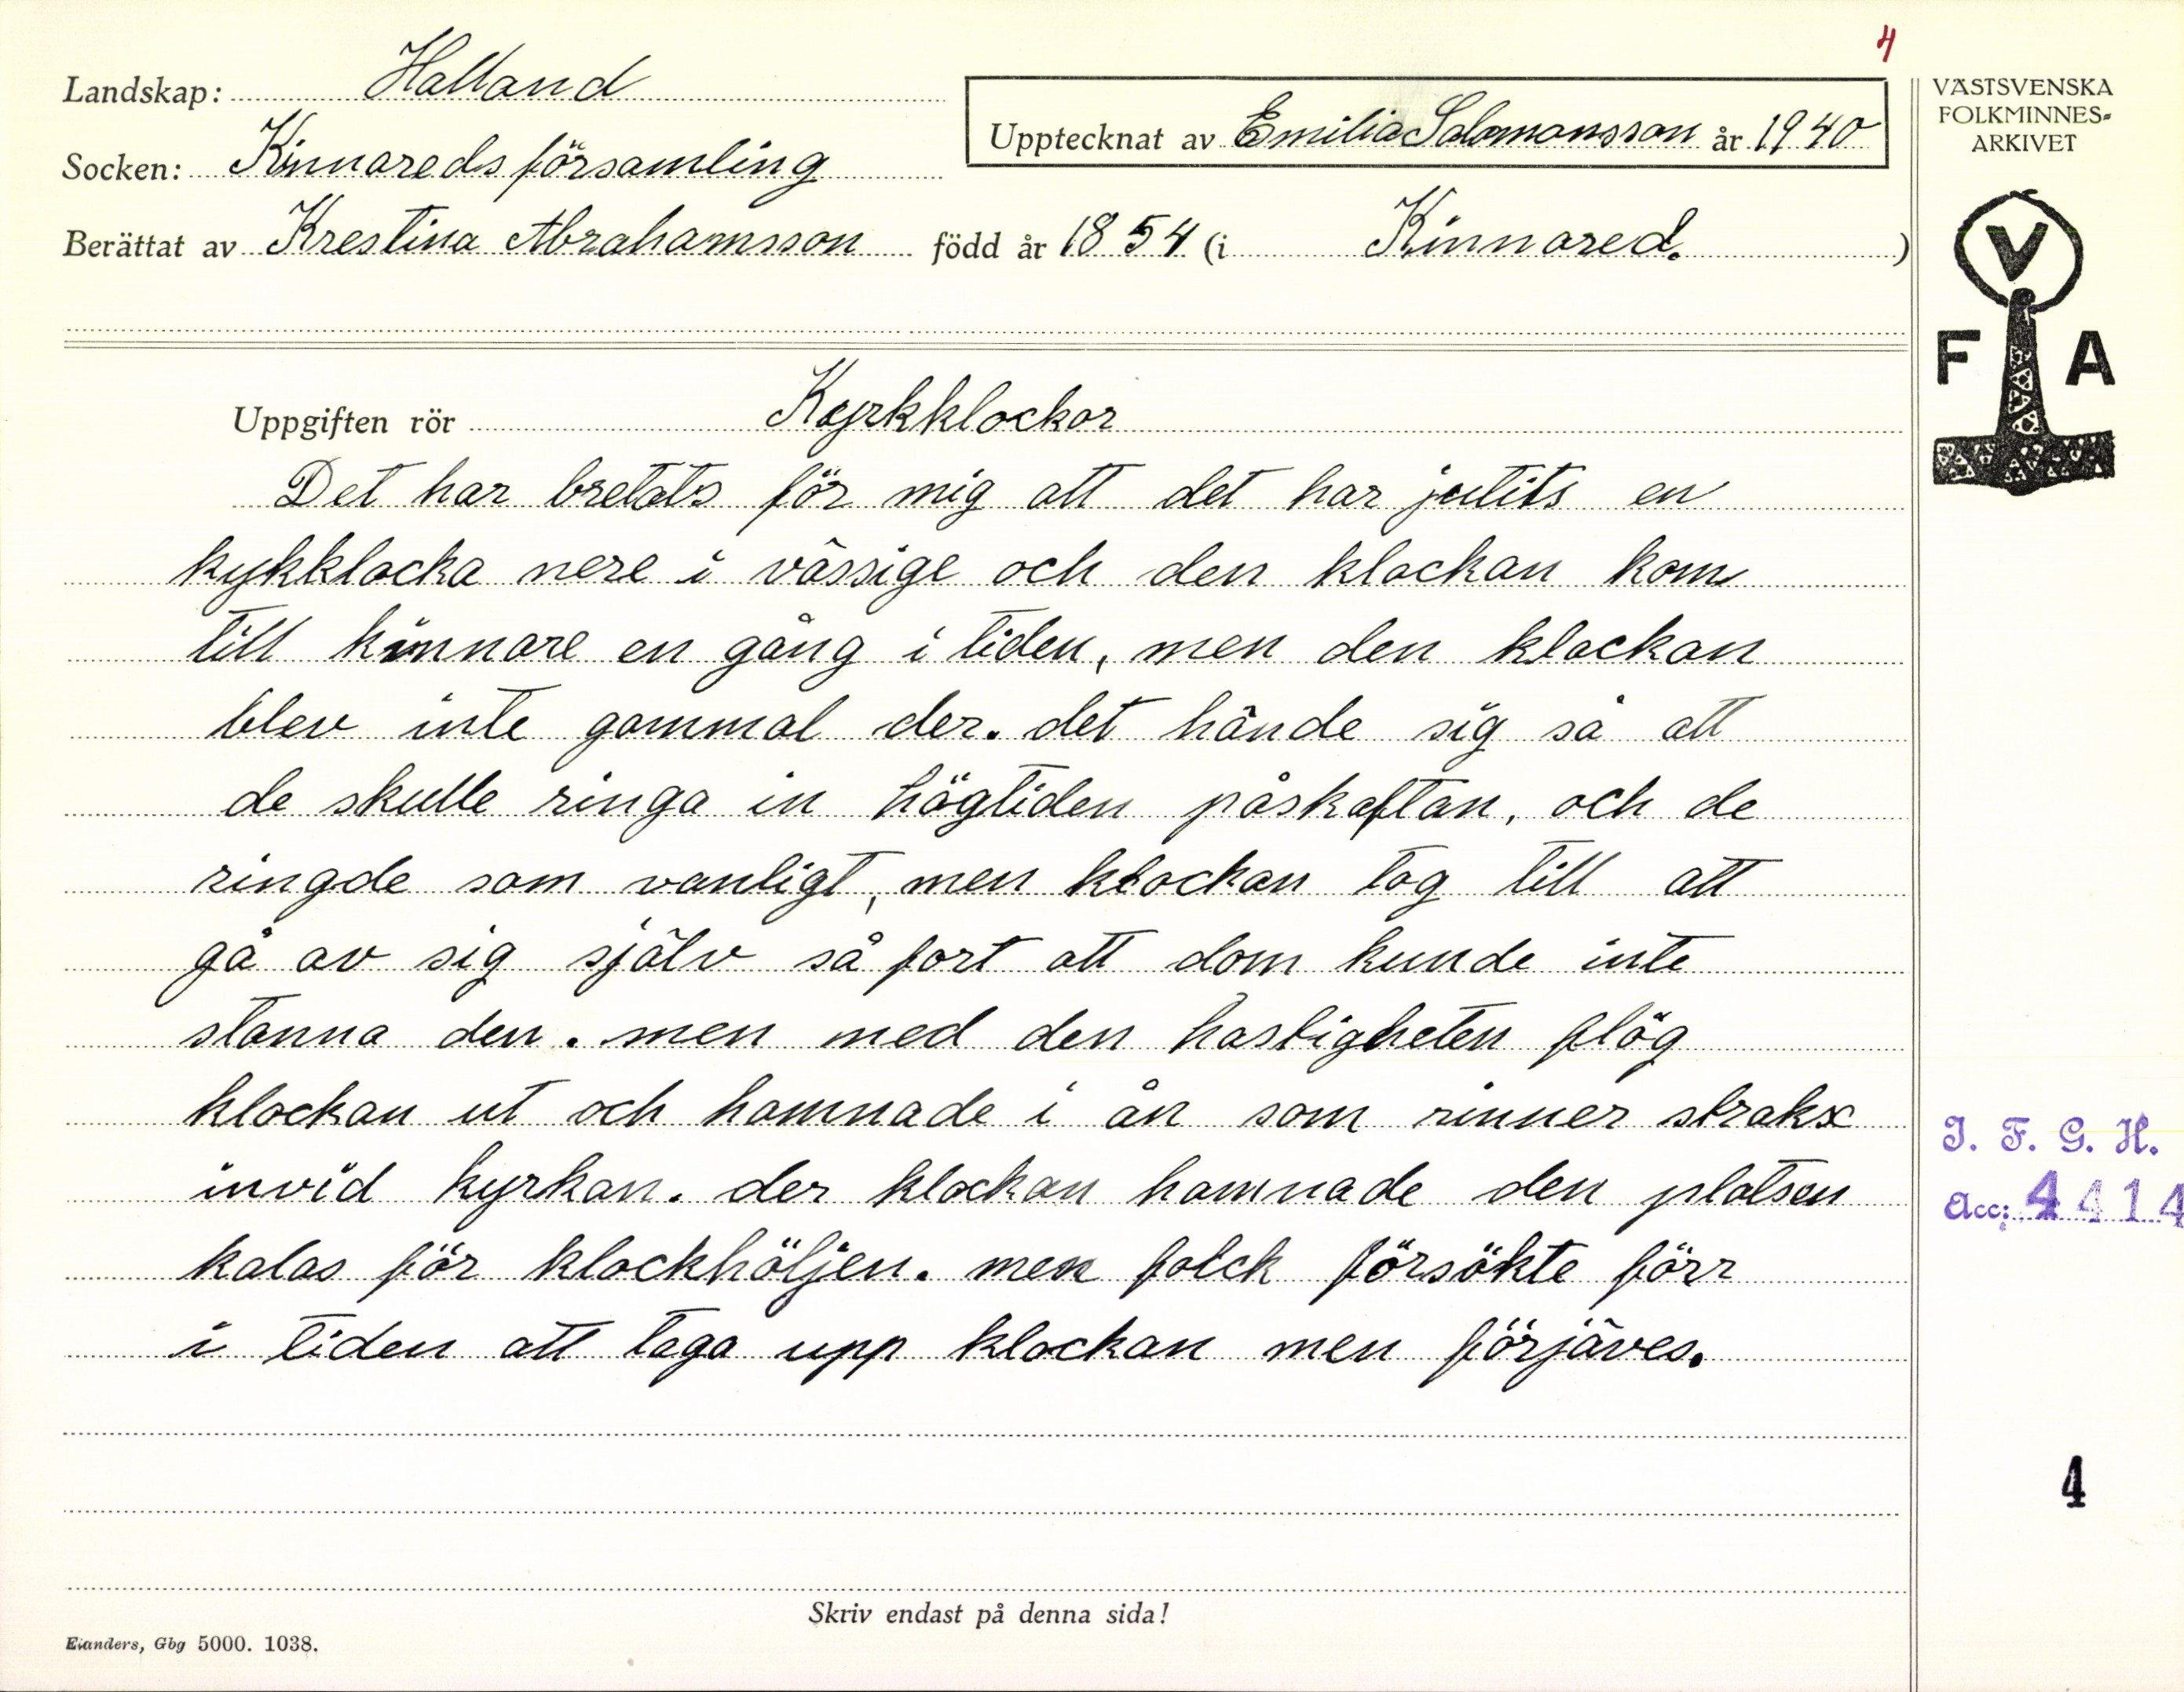 4
Landskap: Halland
Socken: Kinnareds församling
Upptecknat av Emilia Salomonsson år 1940
Berättat av Krestina Abrahamsson född år 1854 (i Kinnared.)
VÄSTSVENSKA
FOLKMINNES-
ARKIVET
V
F A
Uppgiften rör Kyrkklockor
Det har bretats för mig att det har jutits en
kykklocka nere i vässige och den klockan kom
till kinnare en gång i tiden, men den klockan
blev inte gammal der. det hände sig så att
de skulle ringa in högtiden påskaftan, och de
ringde som vanligt, men klockan tog till att
gå av sig själv så fort att dom kunde inte
stanna den. men med den hastigheten flög
klockan ut och hamnade i ån som rinner strakx
invid kyrkan. der klockan hamnade den platsen
kalas för klockhöljen. men folck försökte förr
i tiden att taga upp klockan men förjäves.
I. F. G. H.
Acc: 4414
4
Skriv endast på denna sida!
Elanders, Gbg 5000. 1038.